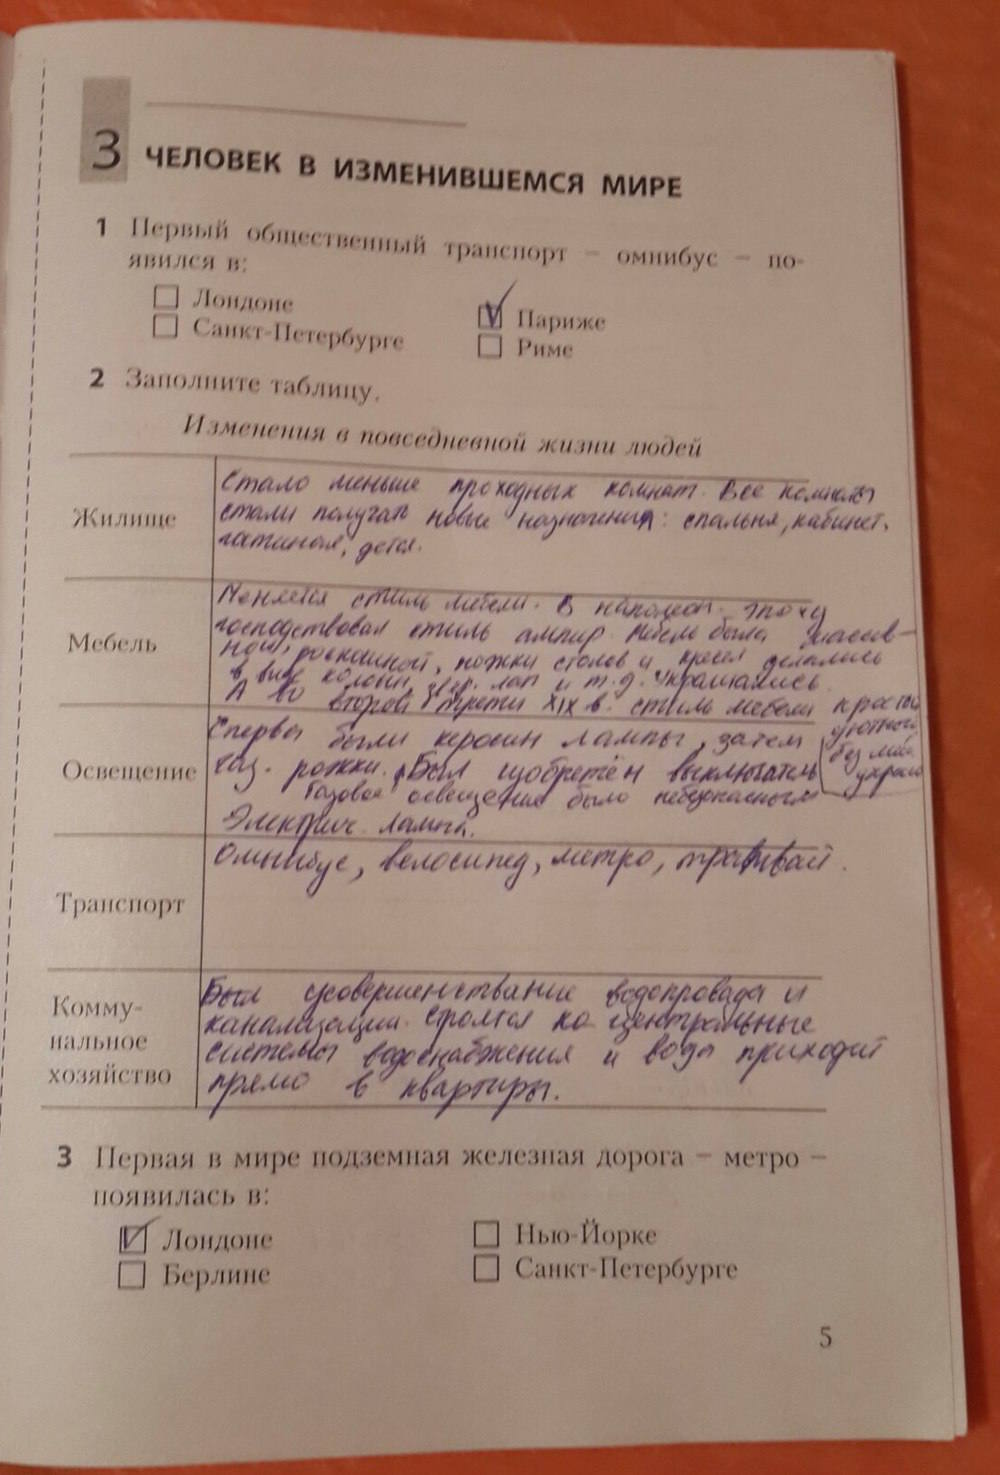 3 ЧЕЛОВЕК В ИЗМЕНИВШЕМСЯ МИРЕ
1 Первый общественный транспорт – омнибус – по-
явился в:
Лондоне
Санкт-Петербурге
Париже
Риме
2 Заполните таблицу.
Изменения в повседневной жизни людей
Жилище
Стало меньше проходных комнат. Все комнаты
стали получать новые назначения: спальня, кабинет,
гостиная, детск.
Мебель
Меняется стиль мебели. В наполеон. эпоху
господствовал стиль ампир. Мебель была массив-
ной, роскошной, ножки столов и кресел делались
в виде колонн, звер. лап и т.д. украшались.
А во второй трети XIX в. стиль мебели простый
уютный
без
Освещение
Сперва были керосин лампы, затем
газ. рожки. Был изобретён выключатель
Газовое освещение было небезопасным
Электрич. лампа.
Транспорт
Омнибус, велосипед, метро, трамвай.
Комму-
нальное
хозяйство
Был усовершенствание водопровода и
канализации. строятся центральные
системы водоснабжения и вода приходит
прямо в квартиры.
3 Первая в мире подземная железная дорога – метро –
появилась в:
Лондоне
Берлине
Нью-Йорке
Санкт-Петербурге
5